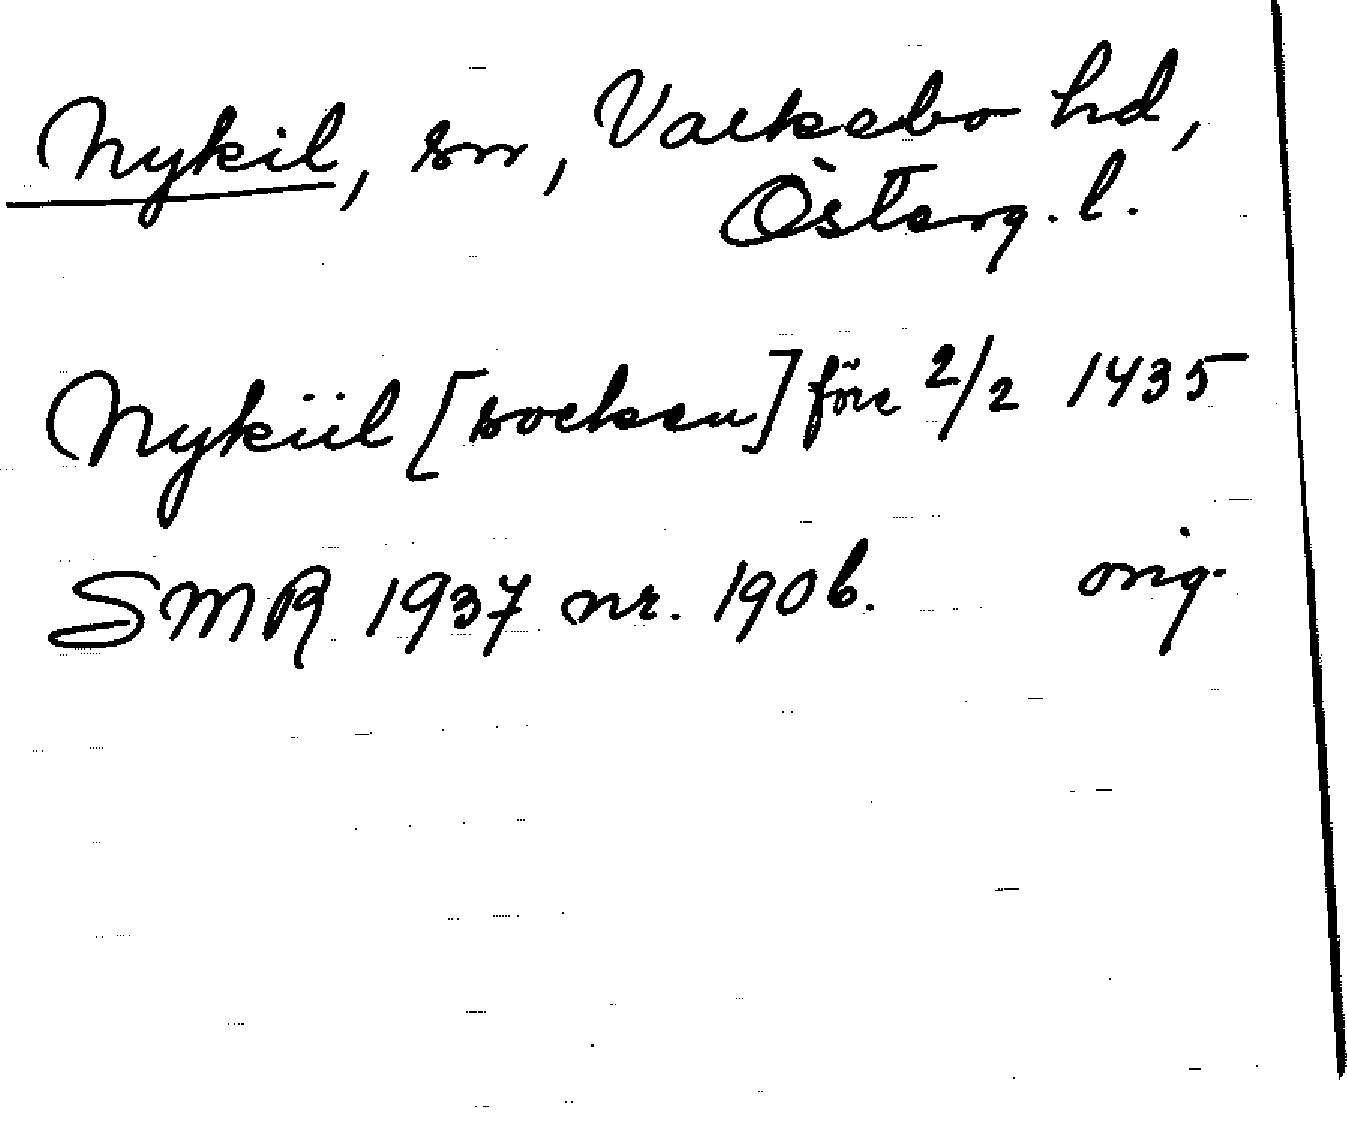 Nykil, sn, Valkebo hd,
Österg. l.
Nykiil [socken] före 2/2 1435
SMR 1937 nr. 1906. orig.